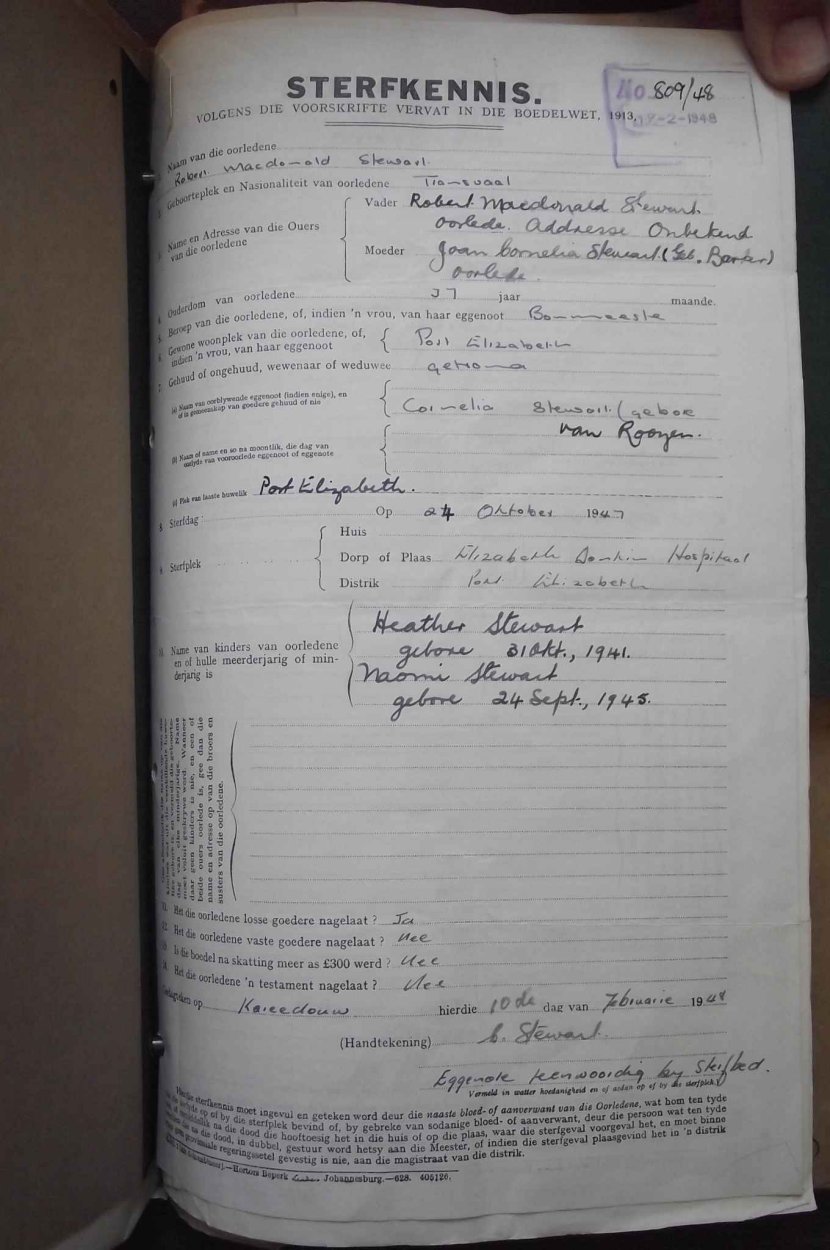 STERFKENNIS.
No 809/48
VOLGENS DIE VOORSKRIFTE VERVAT IN DIE BOEDELWET, 1913.
-2-1948
1. Naam van die oorledene
Robert Macdonald Stewart
2. Geboorteplek en Nasionaliteit van oorledene Transvaal
3. Name en Adresse van die Ouers van die oorledene
Vader Robert Macdonald Stewart.
oorlede. Addresse Onbekend
Moeder Joan Cornelia Stewart (Geb. Barker)
oorlede.
4. Ouderdom van oorledene 37 jaar maande.
5. Beroep van die oorledene, of, indien 'n vrou, van haar eggenoot
6. Gewone woonplek van die oorledene, of,
indien 'n vrou, van haar eggenoot
Port Elizabeth
7. Gehuud of ongehuud, wewenaar of weduwee
(a) Naam van oorblywende eggenoot (indien enige), en
of in gemeenskap van goedere gehuud of nie
Cornelia Stewart (gebore
van Rooyen.
(b) Naam of name en so na moontlik, die dag van
oorlyde van vooroorlede eggenoot of eggenote
(c) Plek van laaste huwelik Port Elizabeth.
8. Sterfdag Op 24 Oktober 1947
9. Sterfplek
Huis
Dorp of Plaas Elizabeth Donkin Hospitaal
Distrik Port Elizabeth
10. Name van kinders van oorledene
en of hulle meerderjarig of min-
derjarig is
Heather Stewart
gebore 31 Okt., 1941.
Naomi Stewart
gebore 24 Sept., 1945.
dag van elke minderjarige. Name
moet voluit geskrywe word. Wanneer
daar geen kinders is nie, en een of
beide ouers oorlede is, gee dan die
name en adresse op van die broers en
susters van die oorledene.
11. Het die oorledene losse goedere nagelaat ? Ja
12. Het die oorledene vaste goedere nagelaat ? Nee
13. Is die boedel na skatting meer as £300 werd ? Nee
14. Het die oorledene 'n testament nagelaat ? Nee
Gedagteken op Kareedouw hierdie 10de dag van Februarie 1948
(Handtekening) C. Stewart.
Eggenote teenwoordig by sterfbed.
Vermeld in watter hoedanigheid en of aldan op of by die sterfplek.
Hierdie sterfkennis moet ingevul en geteken word deur die naaste bloed- of aanverwant van die Oorledene, wat hom ten tyde
op of by die sterfplek bevind of, by gebreke van sodanige bloed- of aanverwant, deur die persoon wat ten tyde
na die dood die hooftoesig het in die huis of op die plaas, waar die sterfgeval voorgeval het, en moet binne
die dood, in dubbel, gestuur word hetsy aan die Meester, of indien die sterfgeval plaasgevind het in 'n distrik
regeringssetel gevestig is nie, aan die magistraat van die distrik.
—Hortors Beperk Johannesburg.—628. 405126.